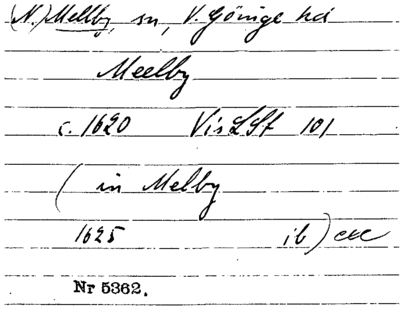 (N.) Mellby, sn, V. Göinge hd
Meelby
c. 1620 VisLSt 101
( in Melby
1625 ib) exc
Nr 5362.